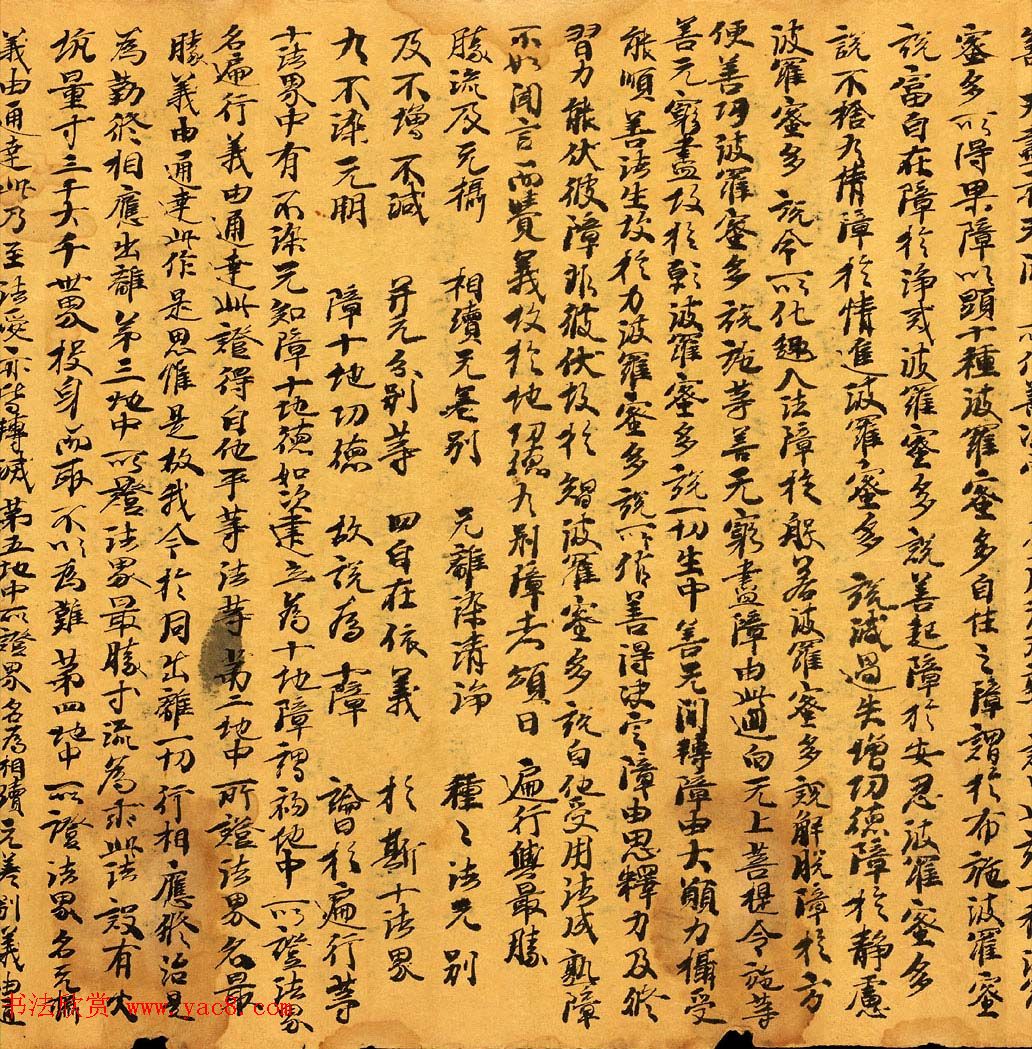 蜜多所得果障以顯十種波羅蜜多自性之障謂於布施波羅蜜
說富自在障於淨戒波羅蜜多說善趣障於安忍波羅蜜多
說不捨有情障於精進波羅蜜多 說減過失增功德障於靜慮
波羅蜜多 說令所化趣入法障於般若波羅蜜多說解脫障於方
便善巧波羅蜜多說施等善无窮盡障由此迴向无上菩提令施等
善无窮盡故於願波羅蜜多說一切生中善无間轉障由大願力攝受
能順善法生故於力波羅蜜多說所作善得決定障由思擇力及修
習力能伏彼障非彼伏故於智波羅蜜多說自他受用法成熟障
不如聞言而覺義故於地功德有別障者頌曰 遍行與最勝
勝流及无攝 相續无差別 无雜染清淨 種〻法无別
及不增不減 并无分別等 四自在依義 於斯十法界
有不染无明 障十地功德 故說為十障 論曰於遍行等
十法界中有不染无知障十地德如次建立為十地障謂初地中所證法界
名遍行義由通達此證得自他平等法等 第二地中所證法界名最
勝義由通達此作是思惟是故我今於同出離一切行相應修治是
為勤修相應出離 第三地中所證法界最勝等流為求此法設有火
坑量等三千大千世界投身而取不以為難 第四地中所證法界名无攝
義由通達此乃至法愛亦皆轉滅第五地中所證界名為相續无差別義由通
书法欣赏 www.yac8.com